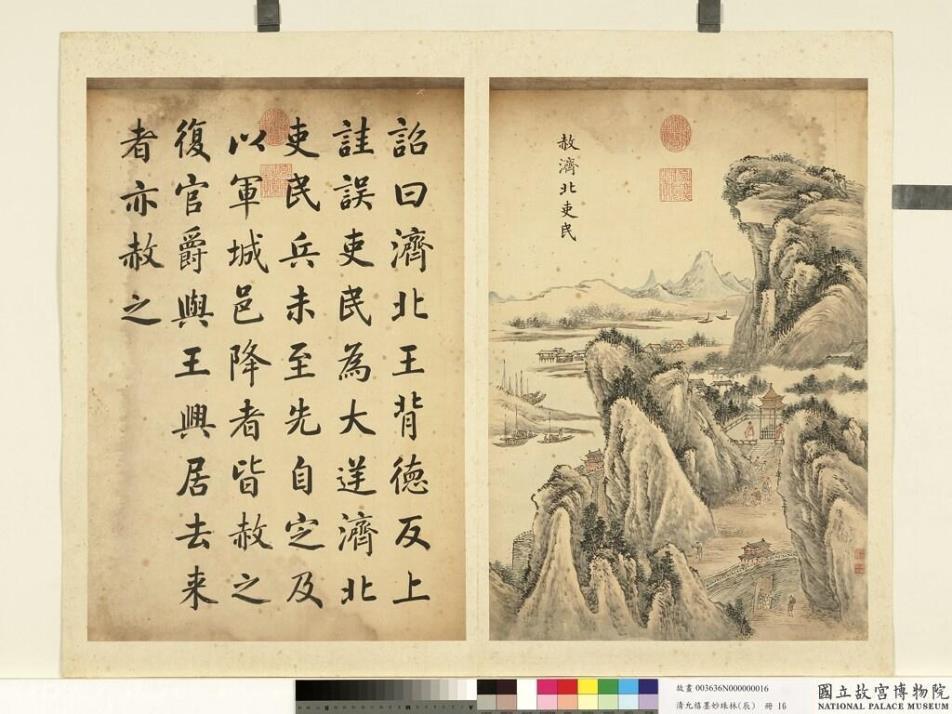 詔曰濟北王背德反上
詿誤吏民為大逆濟北
吏民兵未至先自定及
以軍城邑降者皆赦之
復官爵與王興居去来
者亦赦之
赦濟北吏民
故畫 003636N000000016
清允禧墨妙珠林(辰) 冊 16
國立故宮博物院
NATIONAL PALACE MUSEUM